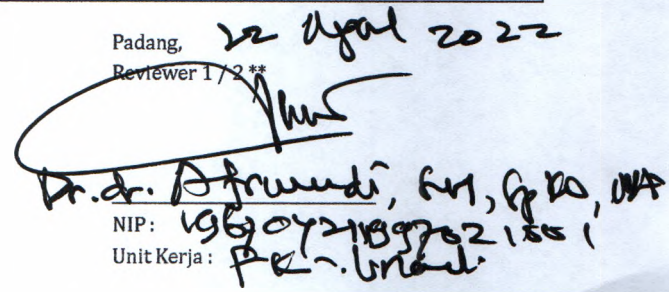 Padang, 22 April 2022
Reviewer 1 / 2 **
Dr. dr. Afriwardi, SH, Sp KO, MA
NIP : 196704211997021001
Unit Kerja : FK - Unand